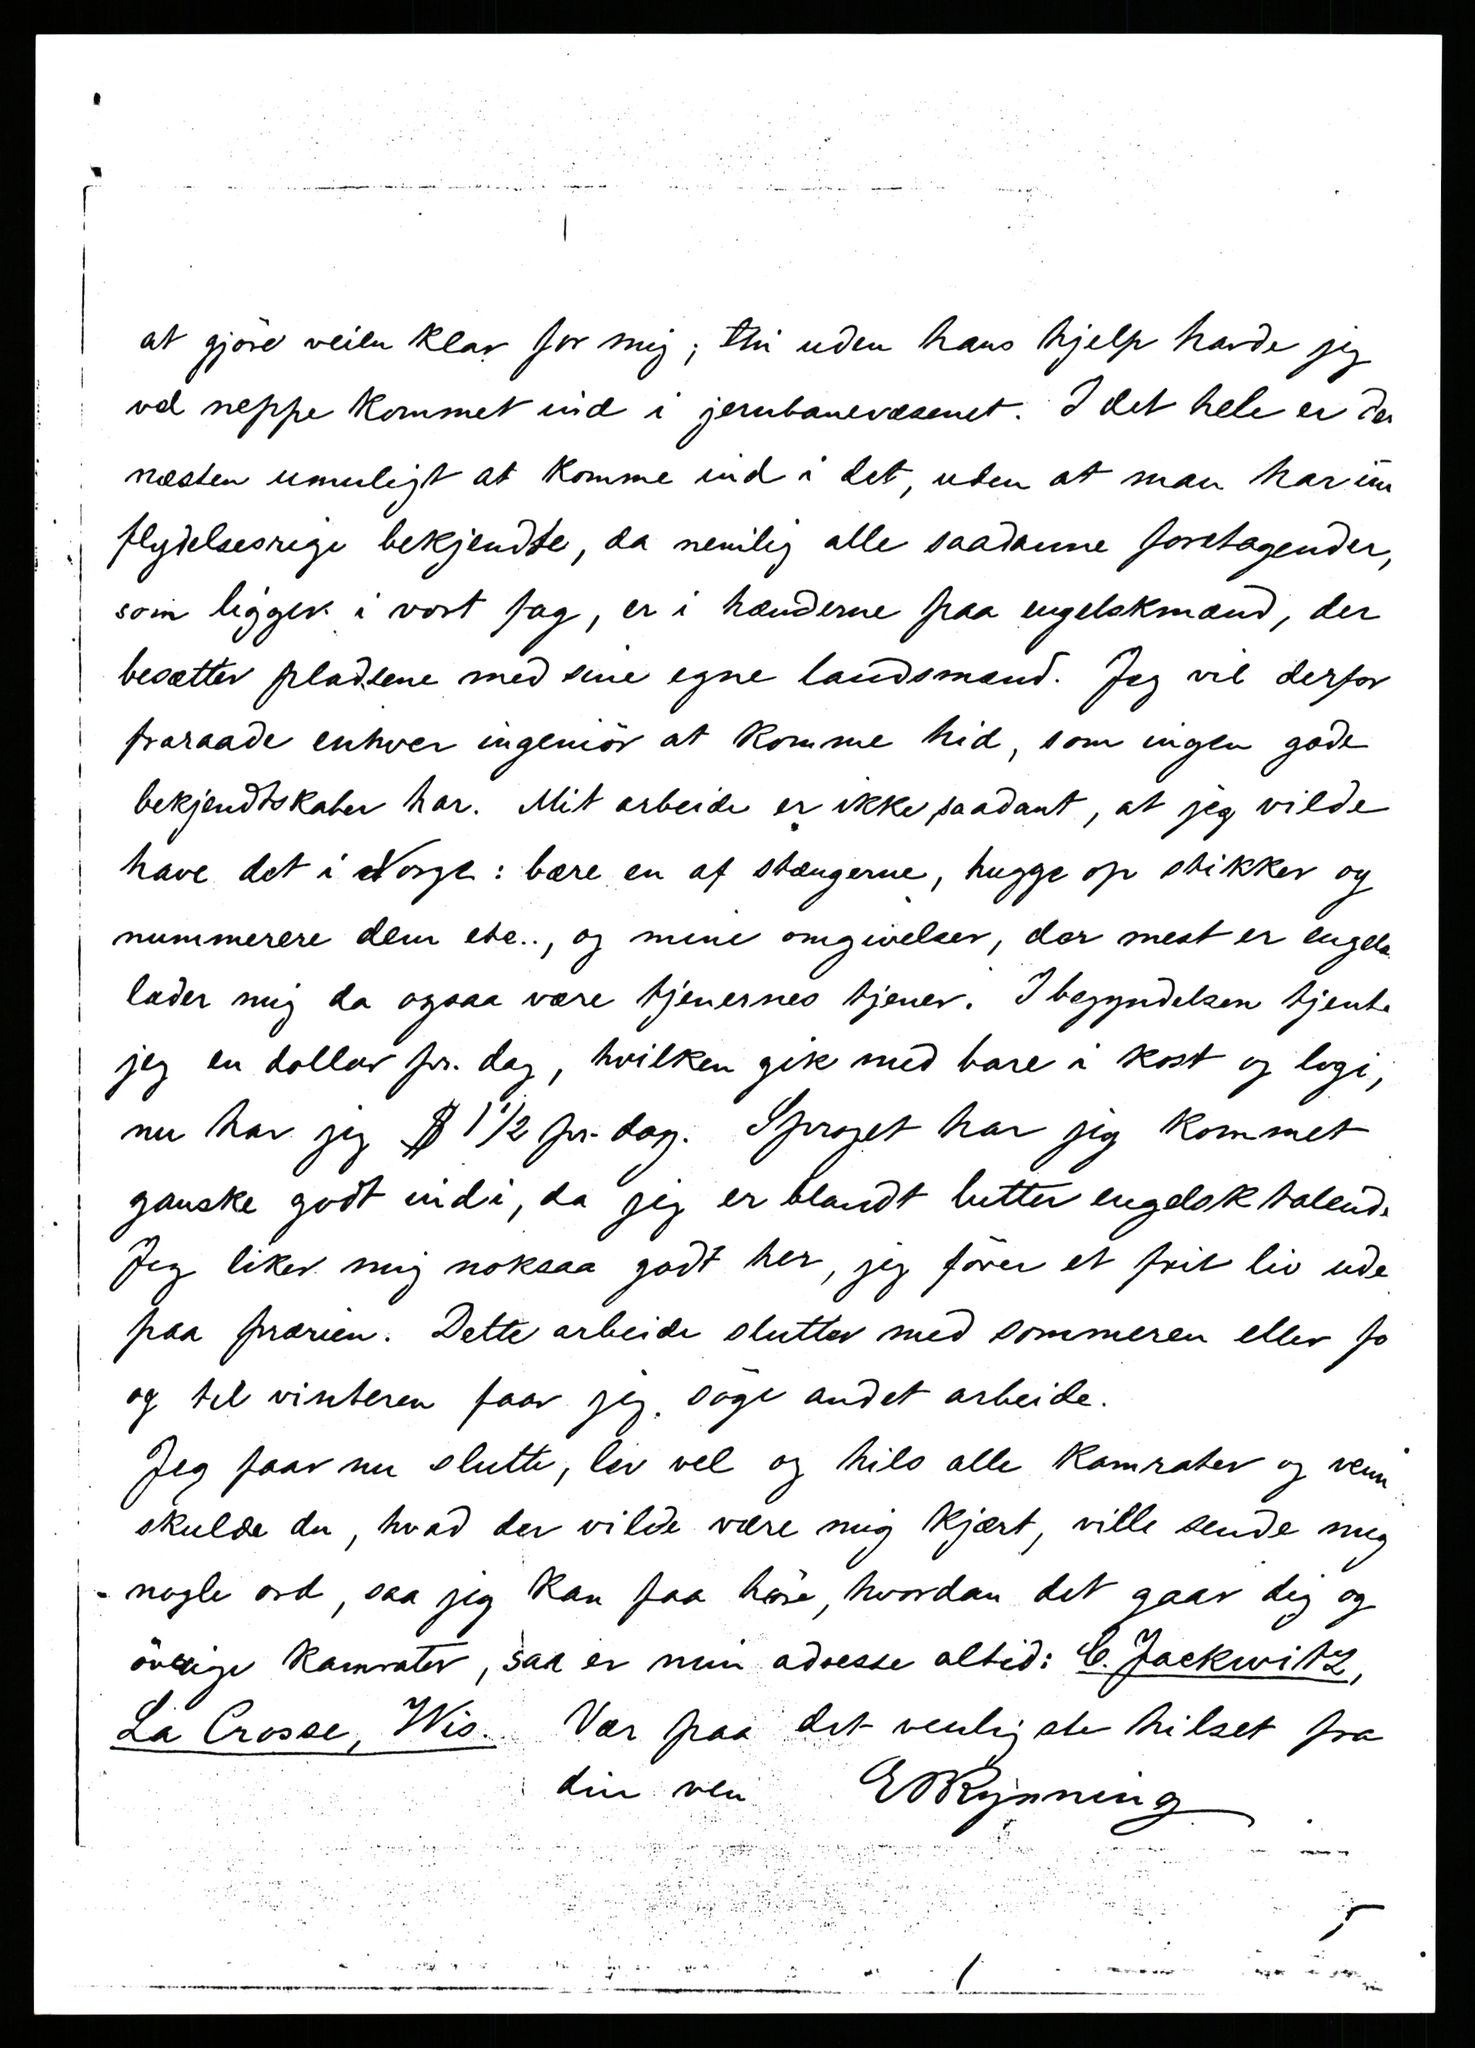 at gjöre veien klar for mig; thi uden hans hjelp havde jeg
vel neppe kommet ind i jernbanevæsenet. I det hele er der
næsten umuligt at komme ind i det, uden at man har in
flydelsesrige bekjendte, da nemlig alle saadanne foretagender,
som ligger i vort fag, er i hænderne paa engelskmænd, der
besætter pladsene med sine egne landsmænd. Jeg vil derfor
fraraade enhver ingeniör at komme hid, som ingen gode
bekjendtskaber har. Mit arbeide er ikke saadant, at jeg vilde
have det i Norge: bære en af stængerne, hugge op stikker og
nummerere dem etc.., og mine omgivelser, der mest er engels
lader mig da ogsaa være tjenernes tjener. I begyndelsen tjente
jeg en dollar pr. dag, hvilken gik med bare i kost og logi,
nu har jeg $ 1 1/2 pr. dag. Sproget har jeg kommet
ganske godt ind i, da jeg er blandt lutter engelsk talende
Jeg liker mig noksaa godt her, jeg förer et frit liv ude
paa prærien. Dette arbeide slutter med sommeren eller fö
og til vinteren faar jeg söge andet arbeide.
Jeg faar nu slutte, lev vel og hils alle kamrater og venn
skulde du, hvad der vilde være mig kjært, ville sende mig
nogle ord, saa jeg kan faa höre, hvordan det gaar dig og
övrige kamrater, saa er min adresse altid: C. Jackwitz,
La Crosse, Wis. Vær paa det venligste hilset fra
din ven E Rynning